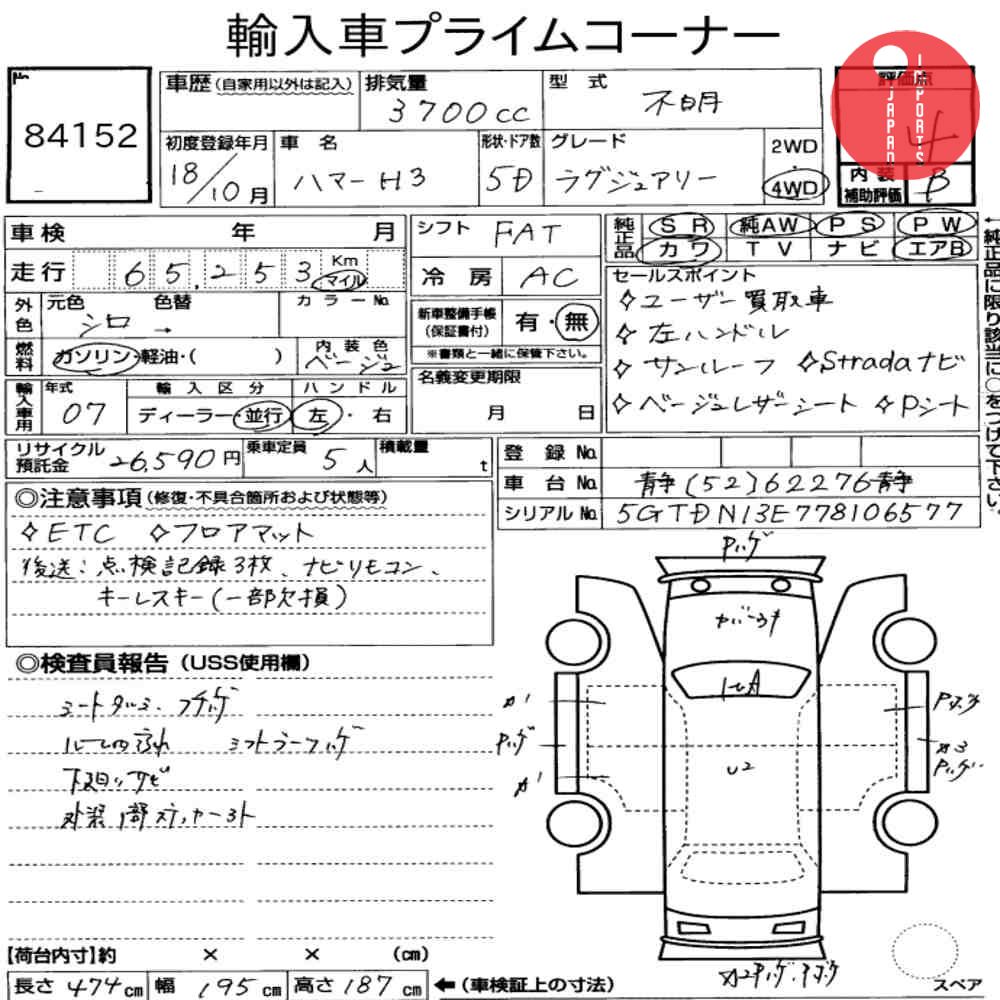 輸入車プライムコーナー
No
84152
車歴(自家用以外は記入)
排気量
3700cc
型 式
不明
評価点
4
JAPAN
IMPORTS
初度登録年月
18/10月
車 名
ハマーH3
形状・ドア数
5D
グレード
ラグジュアリー
2WD
・
4WD
内装
補助評価
B
車検 年 月
走行 65,253 Km
マイル
シフト FAT
冷房 AC
純正品
SR 純AW PS PW
カワ TV ナビ エアB
←純正品に限り該当に○をつけて下さい。
外色
元色 色替 カラーNo.
シロ →
燃料
ガソリン・軽油・( )
内装色
ベージュ
新車整備手帳
(保証書付)
有・無
※書類と一緒に保管下さい。
セールスポイント
◇ユーザー買取車
◇左ハンドル
◇サンルーフ ◇Stradaナビ
◇ベージュレザーシート ◇Pシート
輸入車用
年式
07
輸入区分
ディーラー・並行
ハンドル
左・右
名義変更期限
月 日
リサイクル
預託金
26,590円
乗車定員
5人
積載量
t
登録No.
車台No. 静(52)62276静
シリアルNo. 5GTDN13E778106577
◎注意事項(修復・不具合箇所および状態等)
◇ETC ◇フロアマット
後送:点検記録3枚、ナビリモコン、
キーレスキー(一部欠損)
◎検査員報告(USS使用欄)
下廻りサビ
U2
【荷台内寸】約 × × (cm)
長さ 474cm 幅 195cm 高さ 187cm ←(車検証上の寸法)
スペア